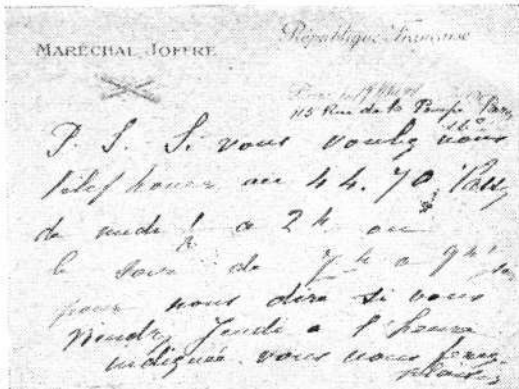 République Française
MARÉCHAL JOFFRE
115 Rue de la Pompe Paris
16e
P. S. Si vous voulez nous
téléphoner au 44.70 Passy
de midi ½ a 2 h ou
le soir de 7 h a 9 h
pour nous dire si vous
viendrez Jeudi a l'heure
indiquée vous nous ferez
plaisir